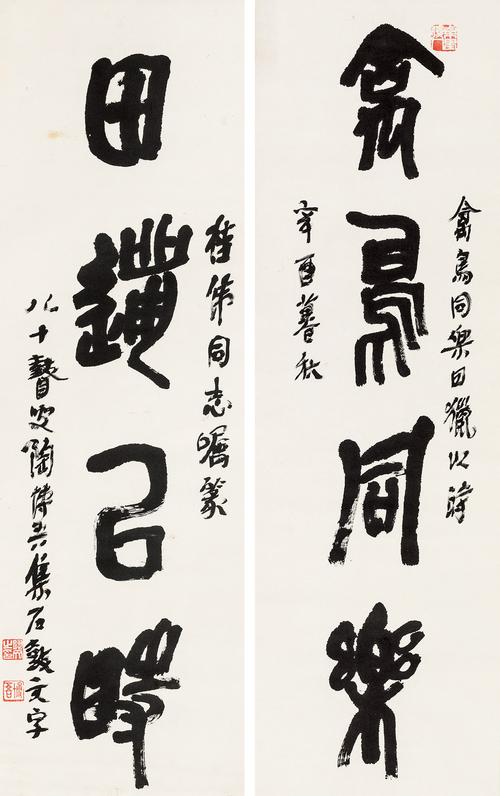 禽鳥同樂田獵以時
禽鳥同樂
辛酉暮秋
桂第同志囑篆
田邋㠯時
八十瞽叟陶博吾集石鼓文字